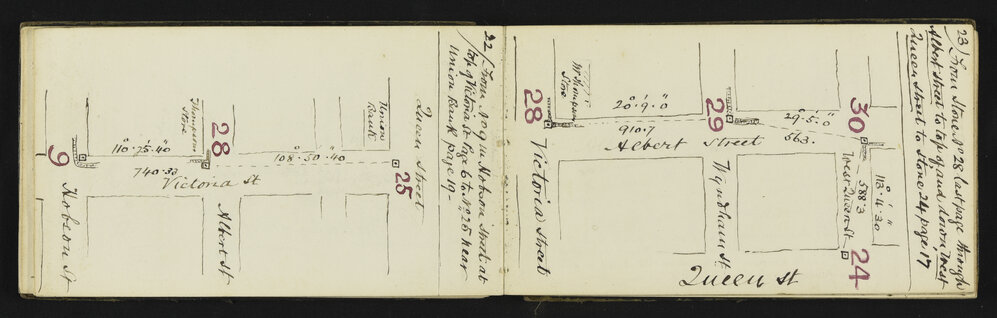 22/ From No 9 in Hobson Street at
top of Victoria St Page 6 to No 25 near
Union Bank page 19 –
9
Hobson St
110°·75'·40"
740·33
Victoria St
Thompsons
Store
28
Albert St
108°·50'·40"
Union
Bank
25
Queen Street
23) From Stone No 28 last page through
Albert Street to top of and down West
Queen Street to Stone 24 page 17
28
Victoria Street
Wm Thompsons
Store
20°·9'·0"
910·7
Albert Street
29
Wyndham St
29°·5'·0"
563·
30
West Queen St
588·3
113°·4'·30"
24
Queen St